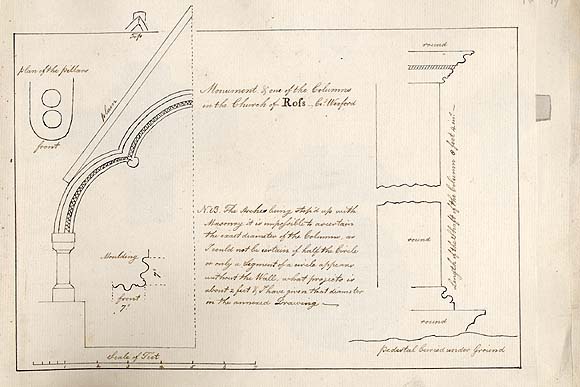 Top
plan of the pillars
front
plain
Monument & one of the Columns
in the Church of Ross, Co. Wexford
N.B. The Arches being stop'd up with
Masonry it is impossible to ascertain
the exact diameter of the Columns, as
I could not be certain if half the Circle
or only a Segment of a circle appears
without the Wall, what projects is
about 2 feet & I have given that diameter
in the annexed Drawing
Moulding
front
7"
Scale of Feet
round
Length of the Shaft of the Column 8 feet 4 ins
round
round
Pedestal buried under Ground